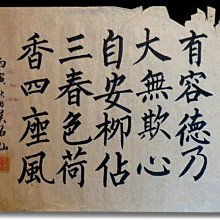 有容德乃
大無欺心
自安柳佔
三春色荷
香四座風